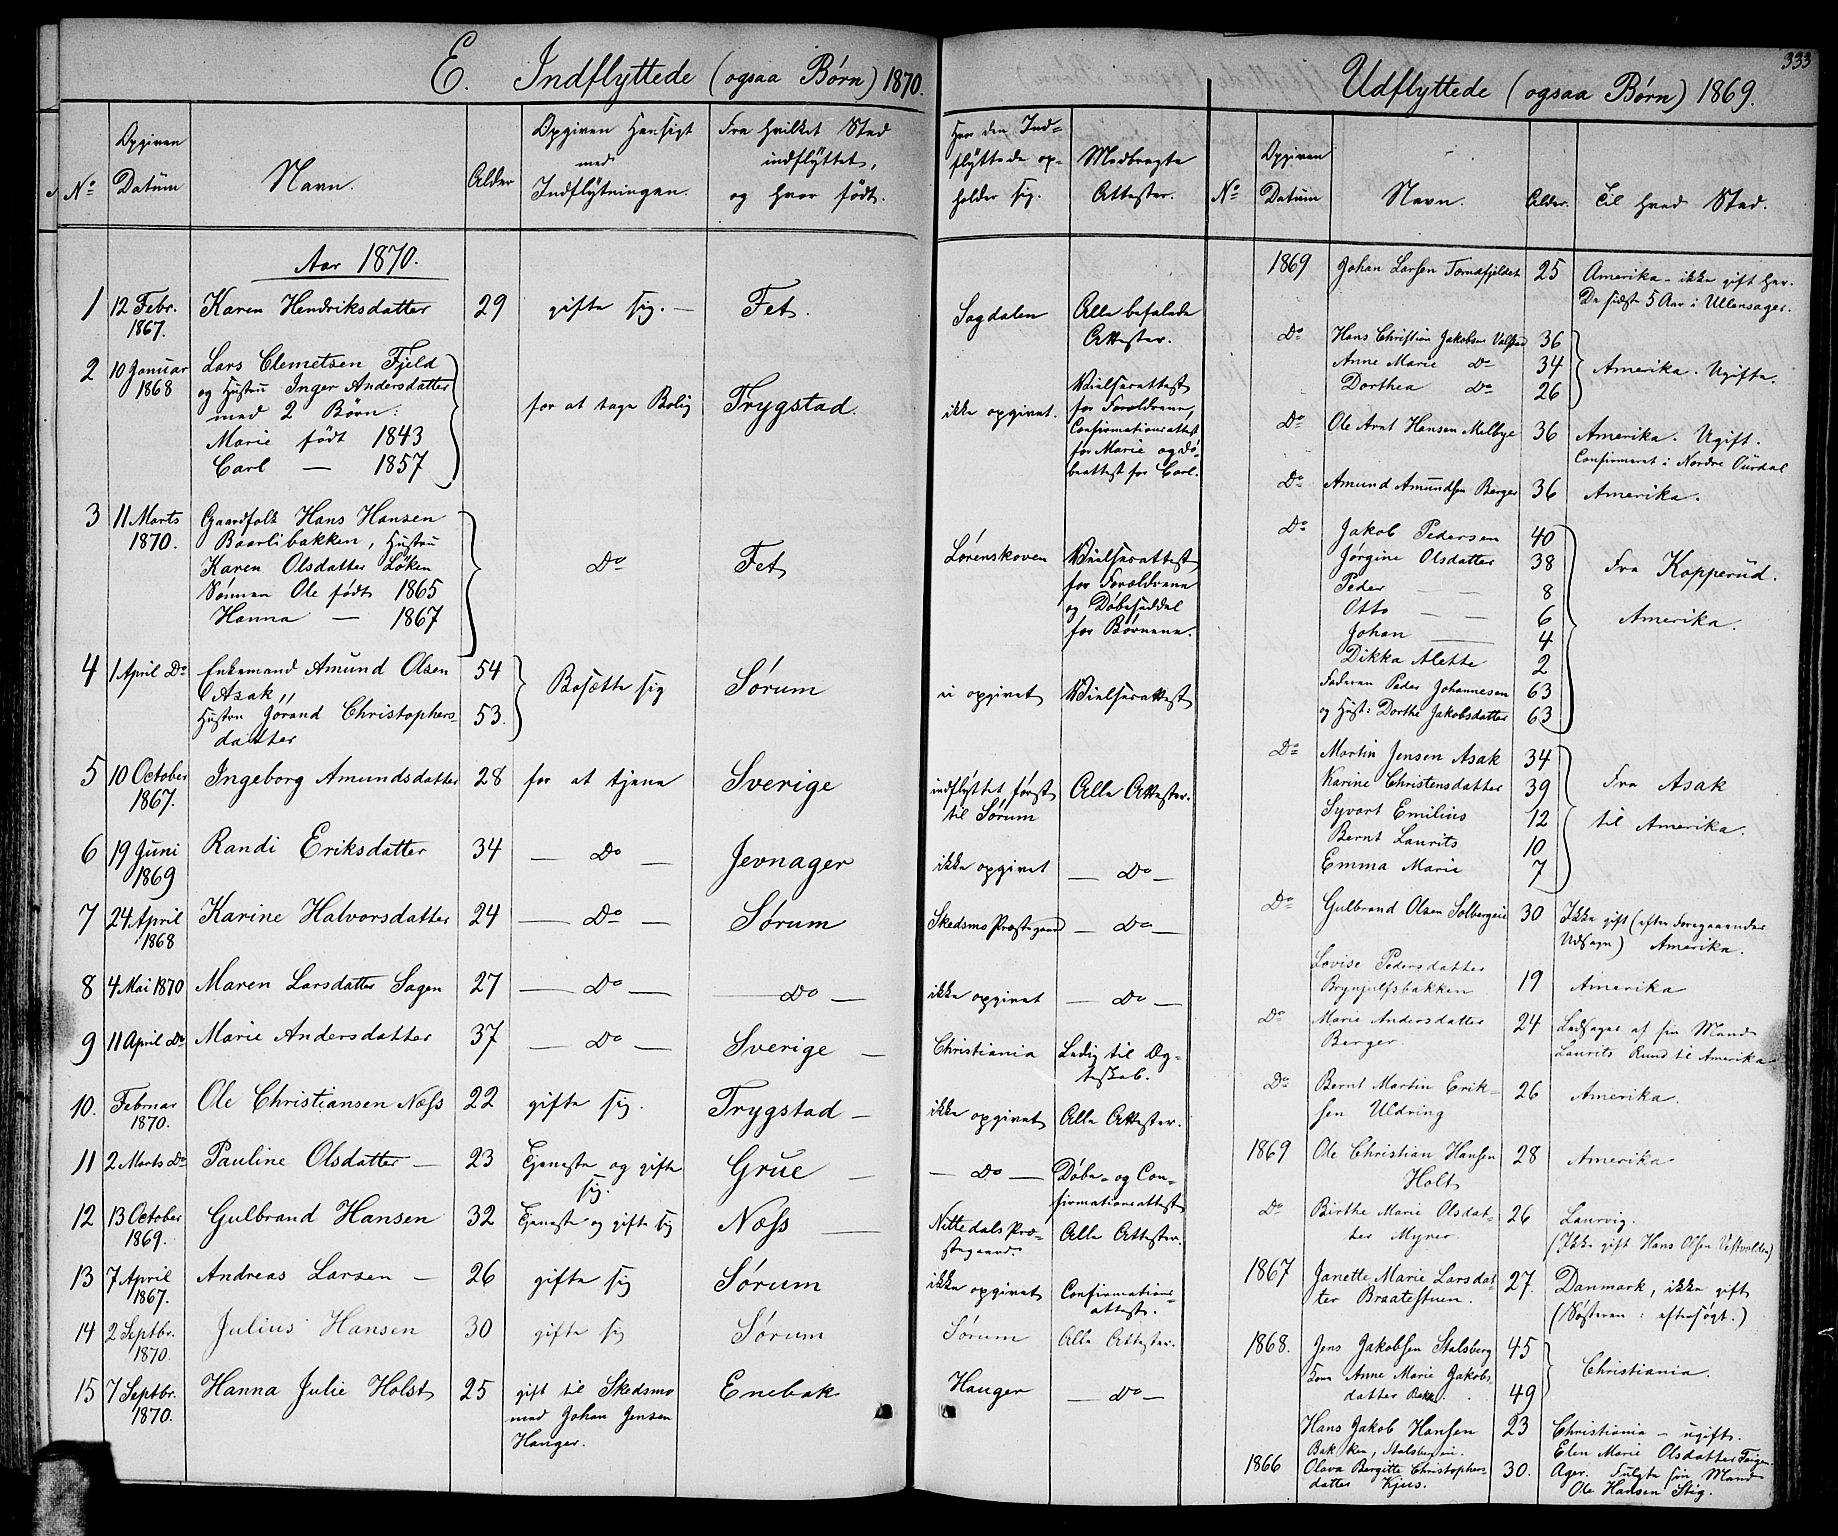 333
E. Indflyttede (ogsaa Børn) 1870.
No
Opgiven Datum
Navn.
Alder
Opgiven Hensigt med Indflytningen.
Fra hvilket Sted indflyttet, og hvor født.
Hvor den Indflyttede opholder sig.
Medbragte Attester.
Aar 1870.
1 12 Febr. 1867. Karen Hendriksdatter 29 gifte sig. – Fet. Sagdalen Alle befalede Attester.
2 10 Januar 1868 Lars Clemetsen Fjeld
og Hustru Inger Andersdatter
med 2 Børn:
Marie født 1843
Carl — 1857
for at tage Bolig Trygstad. ikke opgivet.
Vielsesattest
for Forældrene,
Confirmationsattest
for Marie og Dø-
beattest for Carl.
3 11 Marts 1870. Gaardfolk Hans Hansen
Baarlibakken, Hustru
Karen Olsdatter Løken
Sønnen Ole født 1865
Hanna — 1867
Do Fet Lørenskoven
Vielsesattest
for Forældrene
og Døbeseddel
for Børnene.
4 1 April Do Enkemand Amund Olsen 54
Asak,,
Hustru Jørand Christophers- 53.
datter
Bosætte sig Sørum ei opgivet Vielsesattest
5 10 October 1867. Ingeborg Amundsdatter 28 for at tjene Sverige indflyttet først til Sørum Alle Attester.
6 19 Juni 1869 Randi Eriksdatter 34 — Do — Jevnager ikke opgivet — Do —
7 24 April 1868 Karine Halvorsdatter 24 — Do — Sørum Skedsmo Præstegaard — Do —
8 4 Mai 1870 Maren Larsdatter Sagen 27 — Do — — Do — ikke opgivet — Do —
9 11 April Do Marie Andersdatter 37 — Do — Sverige — Christiania Ledig til Ægteskab.
10. Februar 1870. Ole Christiansen Næss 22 gifte sig. Trygstad — ikke opgivet Alle Attester.
11 2 Marts Do Pauline Olsdatter — 23 Tjeneste og gifte sig. Grue — — Do — Døbe- og Confirmationsattest
12 13 October 1869. Gulbrand Hansen 32 Tjeneste og gifte sig Næss — Nittedals Præstegaard. Alle Attester.
13 7 April 1867. Andreas Larsen — 26 gifte sig Sørum ikke opgivet Confirmations-attest.
14 2 Septbr. 1870. Julius Hansen 30 gifte sig Sørum Sørum Alle Attester.
15 7 Septbr. 1870. Hanna Julie Holst 25 gift til Skedsmo med Johan Jensen Hanger. Enebak Hanger — Do —
Udflyttede (ogsaa Børn) 1869.
No
Opgiven Datum
Navn.
Alder.
Til hvad Sted.
1869 Johan Larsen Tomdfjeldet 25 Amerika – ikke gift her.
De sidste 5 Aar i Ullensager.
Do Hans Christian Jakobsen Valstad 36
Anne Marie Do 34
Dorthea Do 26
Amerika. Ugifte.
Do Ole Arnt Hansen Melbye 36 Amerika. Ugift.
Confirmeret i Nordre Øurdal
Do Amund Amundsen Berger 36 Amerika.
Do Jakob Pedersen 40
Jørgine Olsdatter 38
Peder — — 8
Otto — — 6
Johan — 4
Dikka Alette 2
Faderen Peder Johannesen 63
og Hust: Dorthe Jakobsdatter 63
Fra Kopperud.
Amerika.
Do Martin Jensen Asak 34
Karine Christensdatter 39
Syvart Emilius 12
Bernt Laurits 10
Emma Marie 7
Fra Asak
til Amerika.
Do Gulbrand Olsen Solbergeie 30 Ikke gift (efter Foregaaendes
Udsagn) Amerika.
Lovise Pedersdatter
Brynjulfsbakken 19 Amerika
Do Marie Andersdatter 24 Ledsaget af sin Mand
Berger. Laurits Rund til Amerika
Do Bernt Martin Erik-
sen Uldring 26 Amerika.
1869 Ole Christian Hansen 28 Amerika
Holt
Do Birthe Marie Olsdat- 26 Laurvig.
ter Myrer (Ikke gift Hans Olsen Vestvolden)
1867 Janette Marie Larsdat- 27. Danmark, ikke gift
ter Braatestuen. (Søsteren: eftersøgt.)
1868. Jens Jakobsen Stalsberg 45
Kone Anne Marie Jakobs
datter Bakke. 49
Christiania.
Hans Jakob Hansen 23 Christiania – ugift.
Bakken, Stalsbergeie. Elen Marie Olsdatter Teigen
1866 Olava Bergitte Christophers- 30. Ager. Fulgte sin Mand
datter Kjus. Ole Hansen Stig.